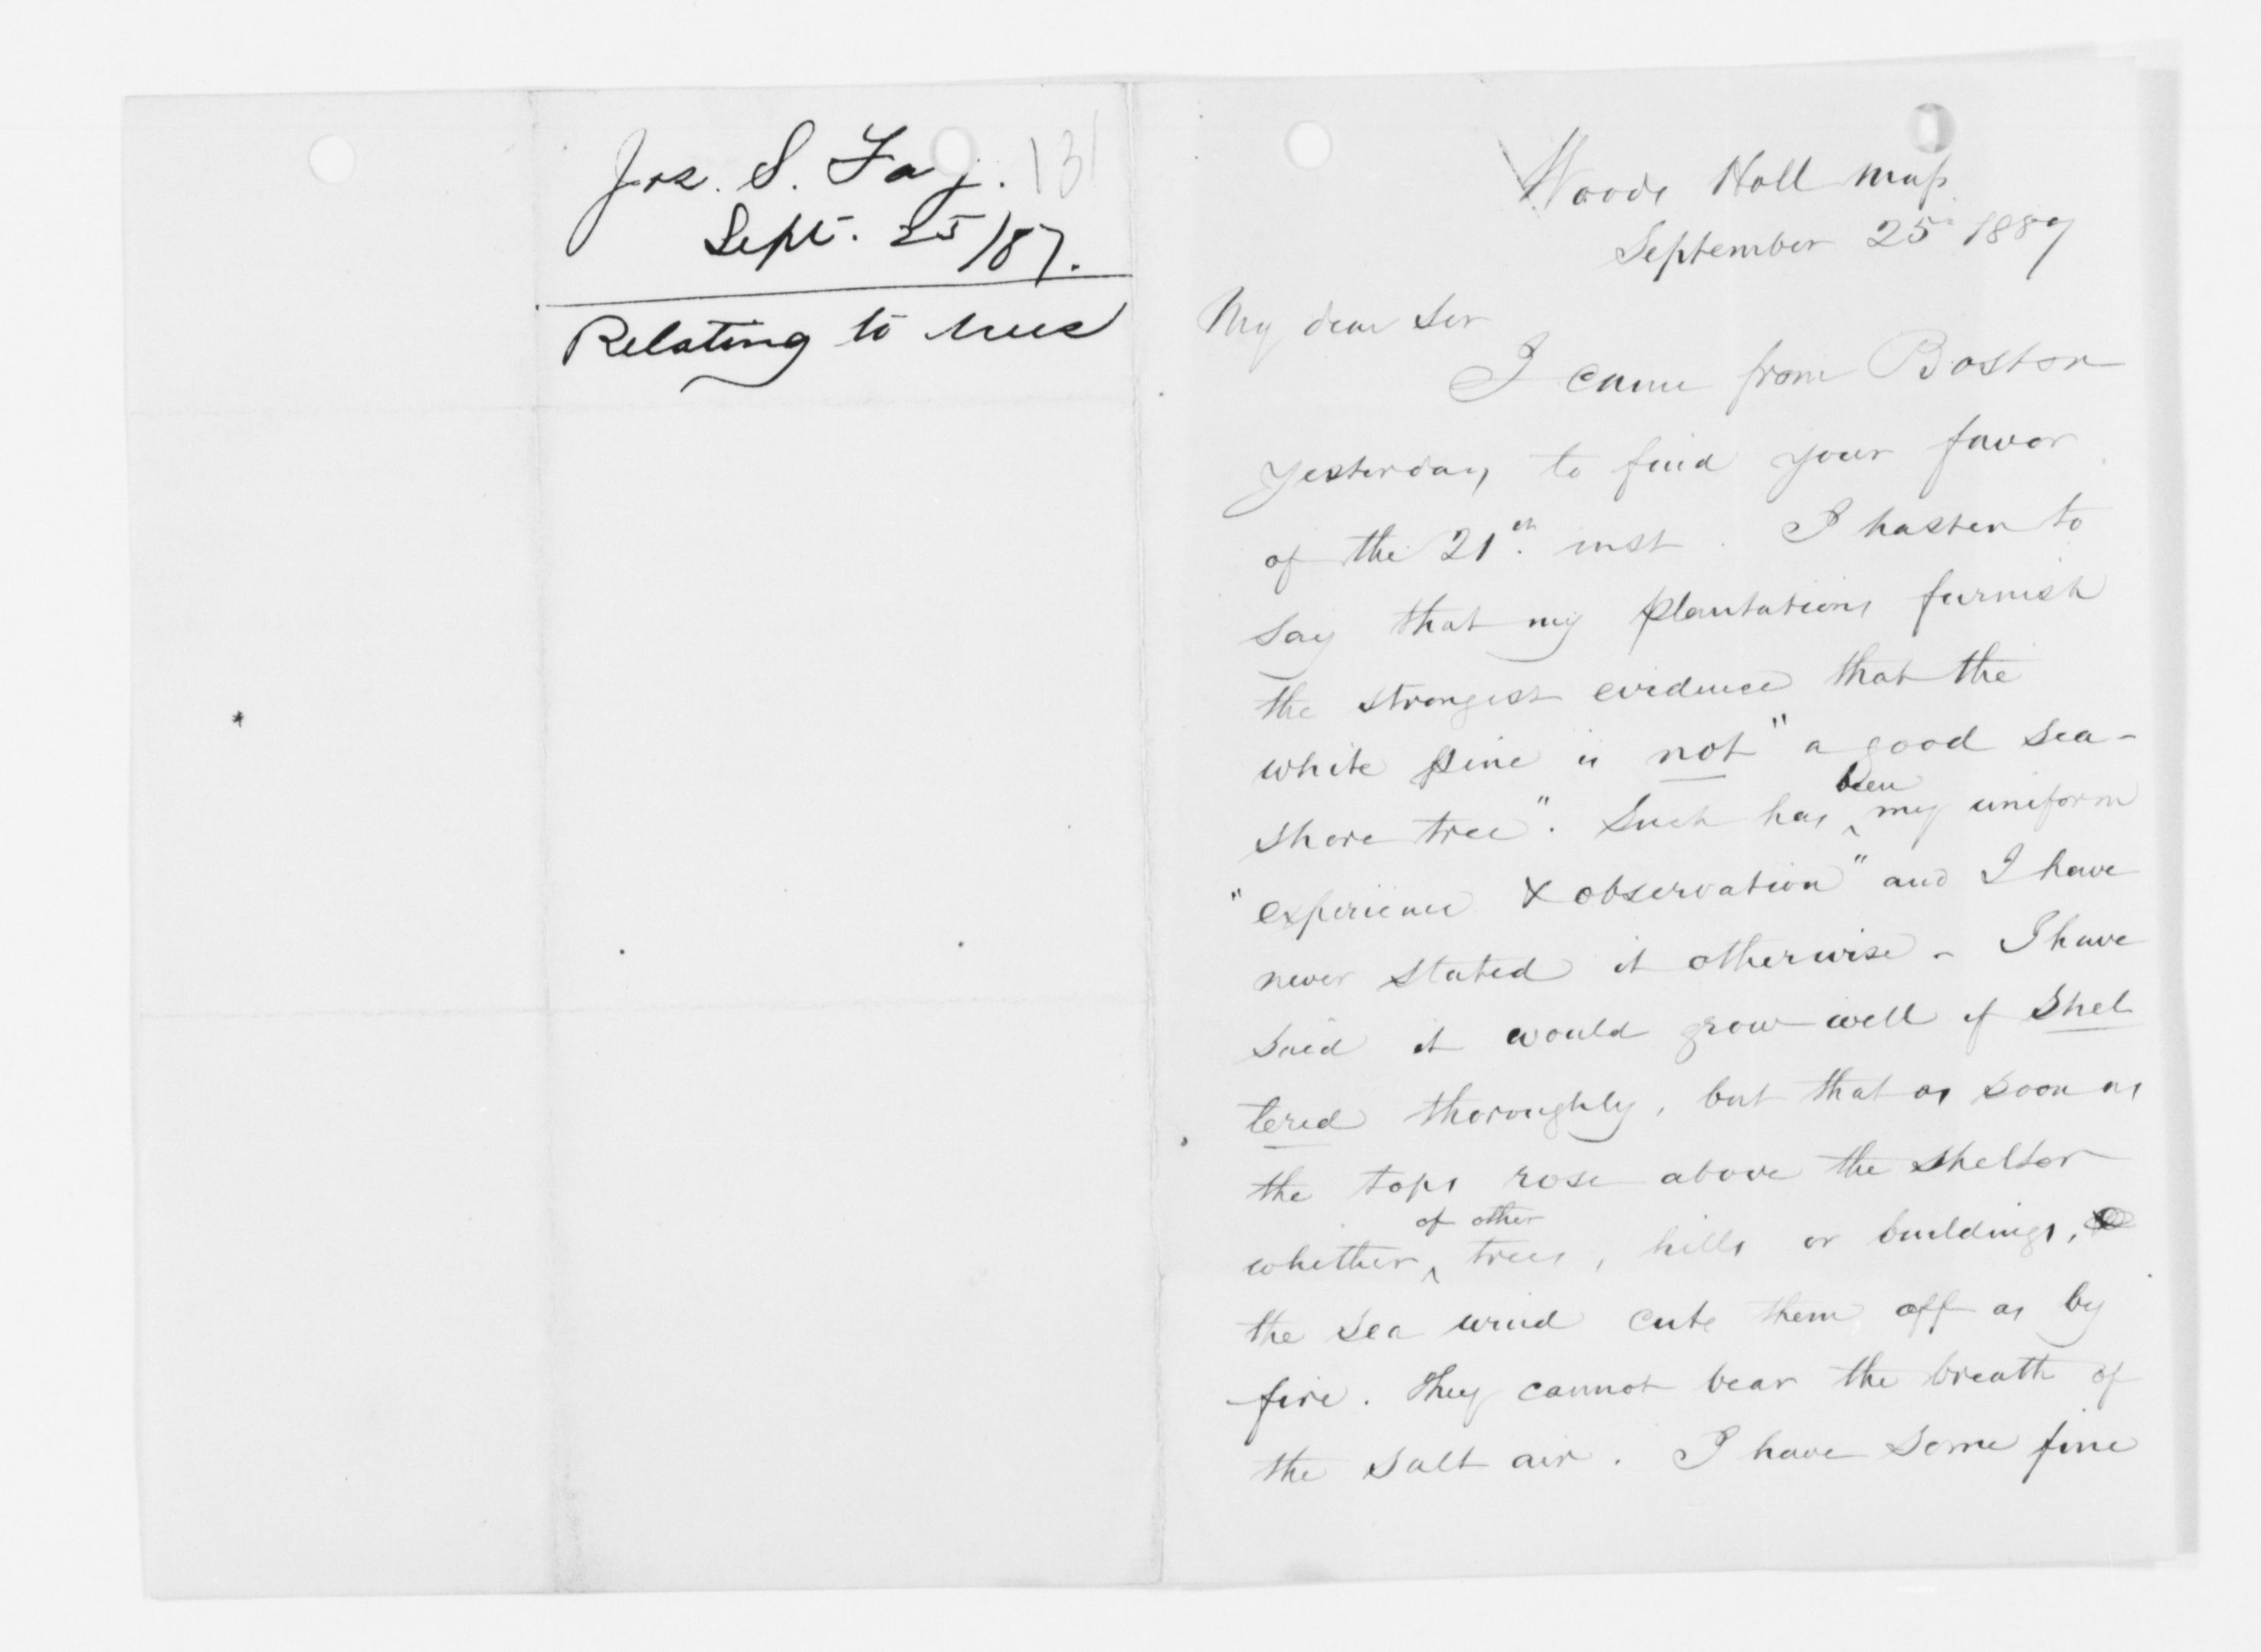 Jos. S. Fay. 131
Sept. 25/87.
Relating to trees
Woods Holl Mass
September 25 1887
My dear Sir
I came from Boston
yesterday to find your favor
of the 21th inst. I hasten to
say that my plantations furnish
the strongest evidence that the
white pine is not "a good sea-
shore tree". Such has been my uniform
"experience & observation" and I have
never stated it otherwise - I have
said it would grow well if shel
tered thoroughly, but that as soon as
the tops rose above the shelter
whether of other trees, hills or buildings,
the sea wind cuts them off as by
fire. They cannot bear the breath of
the salt air. I have some fine